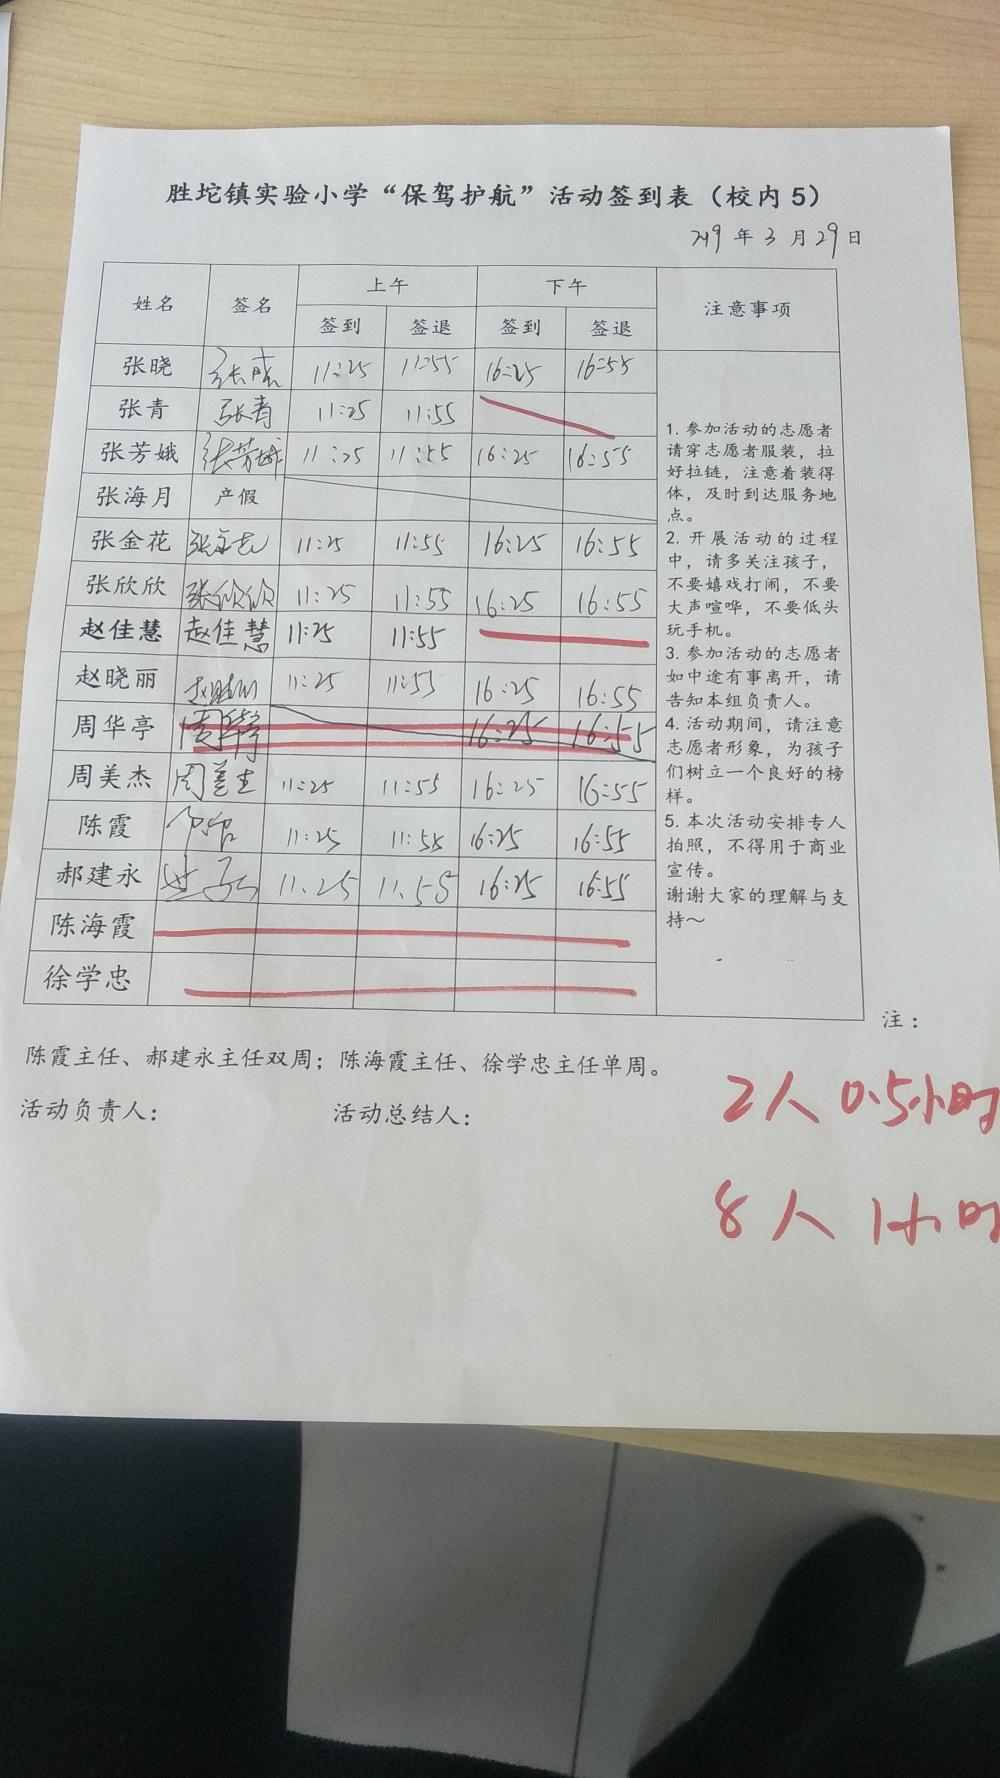 胜坨镇实验小学“保驾护航”活动签到表（校内5）
2019年3月29日
姓名 签名 上午 下午 注意事项
签到 签退 签到 签退
张晓 11:25 11:55 16:25 16:55
张青 张青 11:25 11:55
张芳娥 张芳娥 11:25 11:55 16:25 16:55
张海月 产假
张金花 11:25 11:55 16:25 16:55
张欣欣 张欣欣 11:25 11:55 16:25 16:55
赵佳慧 赵佳慧 11:25 11:55
赵晓丽 赵晓丽 11:25 11:55 16:25 16:55
周华亭 周华亭 16:25 16:55
周美杰 周美杰 11:25 11:55 16:25 16:55
陈霞 11:25 11:55 16:25 16:55
郝建永 11.25 11.58 16:25 16:55
陈海霞
徐学忠
1. 参加活动的志愿者
请穿志愿者服装，拉
好拉链，注意着装得
体，及时到达服务地
点。
2. 开展活动的过程
中，请多关注孩子，
不要嬉戏打闹，不要
大声喧哗，不要低头
玩手机。
3. 参加活动的志愿者
如中途有事离开，请
告知本组负责人。
4. 活动期间，请注意
志愿者形象，为孩子
们树立一个良好的榜
样。
5. 本次活动安排专人
拍照，不得用于商业
宣传。
谢谢大家的理解与支
持～
注：
陈霞主任、郝建永主任双周；陈海霞主任、徐学忠主任单周。
活动负责人： 活动总结人：
2人 0.5小时
8人 1小时